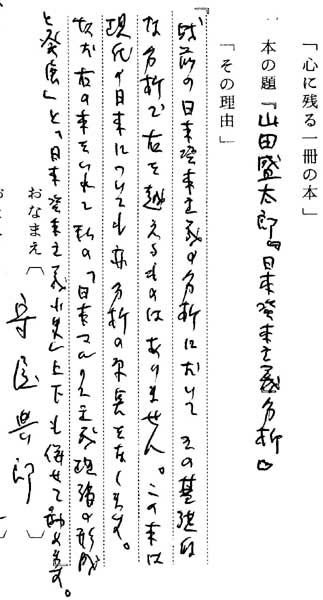 「心に残る一冊の本」
本の題『山田盛太郎『日本資本主義分析』
「その理由」
戦前の日本資本主義の分析において その基礎的
な分析で右を越えるものはありません。この本は
現代の日本についても亦分析の果実をなします。
なお右の本をいれて私の『日本マルクス主義理論の形成
と発展』と『日本資本主義小史』上下も併せて勧めます。
おなまえ〔 守屋典郎